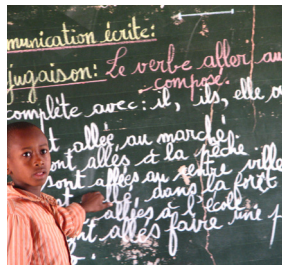 munication écrite:
jugaison: Le verbe aller au
composé.
complète avec: il, ils, elle ou
t allée au marché.
ont allés à la pêche.
sont allées au centre ville
allé dans la forêt
allés à l'école
nt allés faire une p